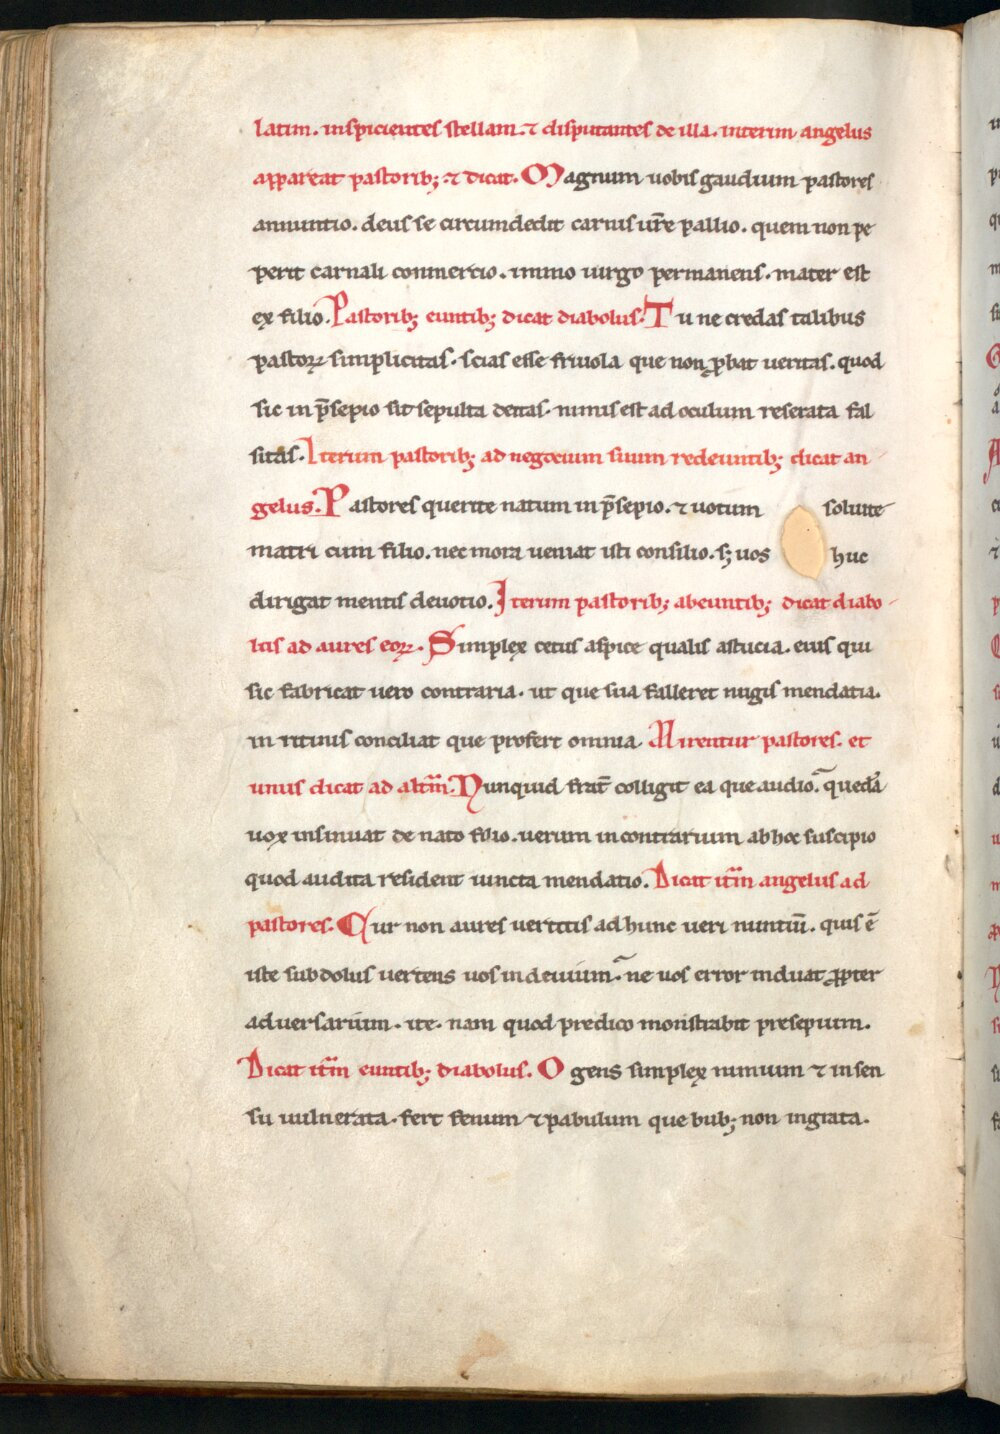 latim. inspicientes stellam ⁊ disputantes de illa. interim angelus
appareat pastorib; ⁊ dicat. Magnum uobis gaudium pastores
annuntio. deus se circumdedit carnis ur̅e pallio. quem non pe
perit carnali conmercio. immo uirgo permanens. mater est
ex filio. Pastorib; euntib; dicat diabolus. Tu ne credas talibus
pastoꝝ simplicitas. scias esse friuola que non ꝓbat ueritas. quod
sic in p̅sepio sit sepulta deitas. nimis est ad oculum reserata fal
sitas. Iterum pastorib; ad negocium suum redeuntib; dicat an
gelus. Pastores querite natum in p̅sepio. ⁊ uotum soluite
matri cum filio. nec mora ueniat isti consilio. s; uos huc
dirigat mentis deuotio. Iterum pastorib; abeuntib; dicat diabo
lus ad aures eoꝝ. Simplex cetus aspice qualis astucia. eius qui
sic fabricat uero contraria. ut que sua falleret nugis mendatia.
in ritmis conciliat que profert omnia. Mirentur pastores. et
unus dicat ad alt̅m. Nunquid frat̅ colligit ea que audio. queda̅
uox insinuat de nato filio. uerum in contrarium ab hoc suscipio
quod audita resident iuncta mendatio. Dicat it̅m angelus ad
pastores. Cur non aures uertitis ad hunc ueri nuntiu̅. quis e̅
iste subdolus uertens uos in deuium. ne uos error induat ꝓpter
aduersarium. ite. nam quod predico monstrabit presepium.
Dicat it̅m euntib; diabolus. O gens simplex nimium ⁊ in sen
su uulnerata. fert fenum ⁊ pabulum que bub; non ingrata.